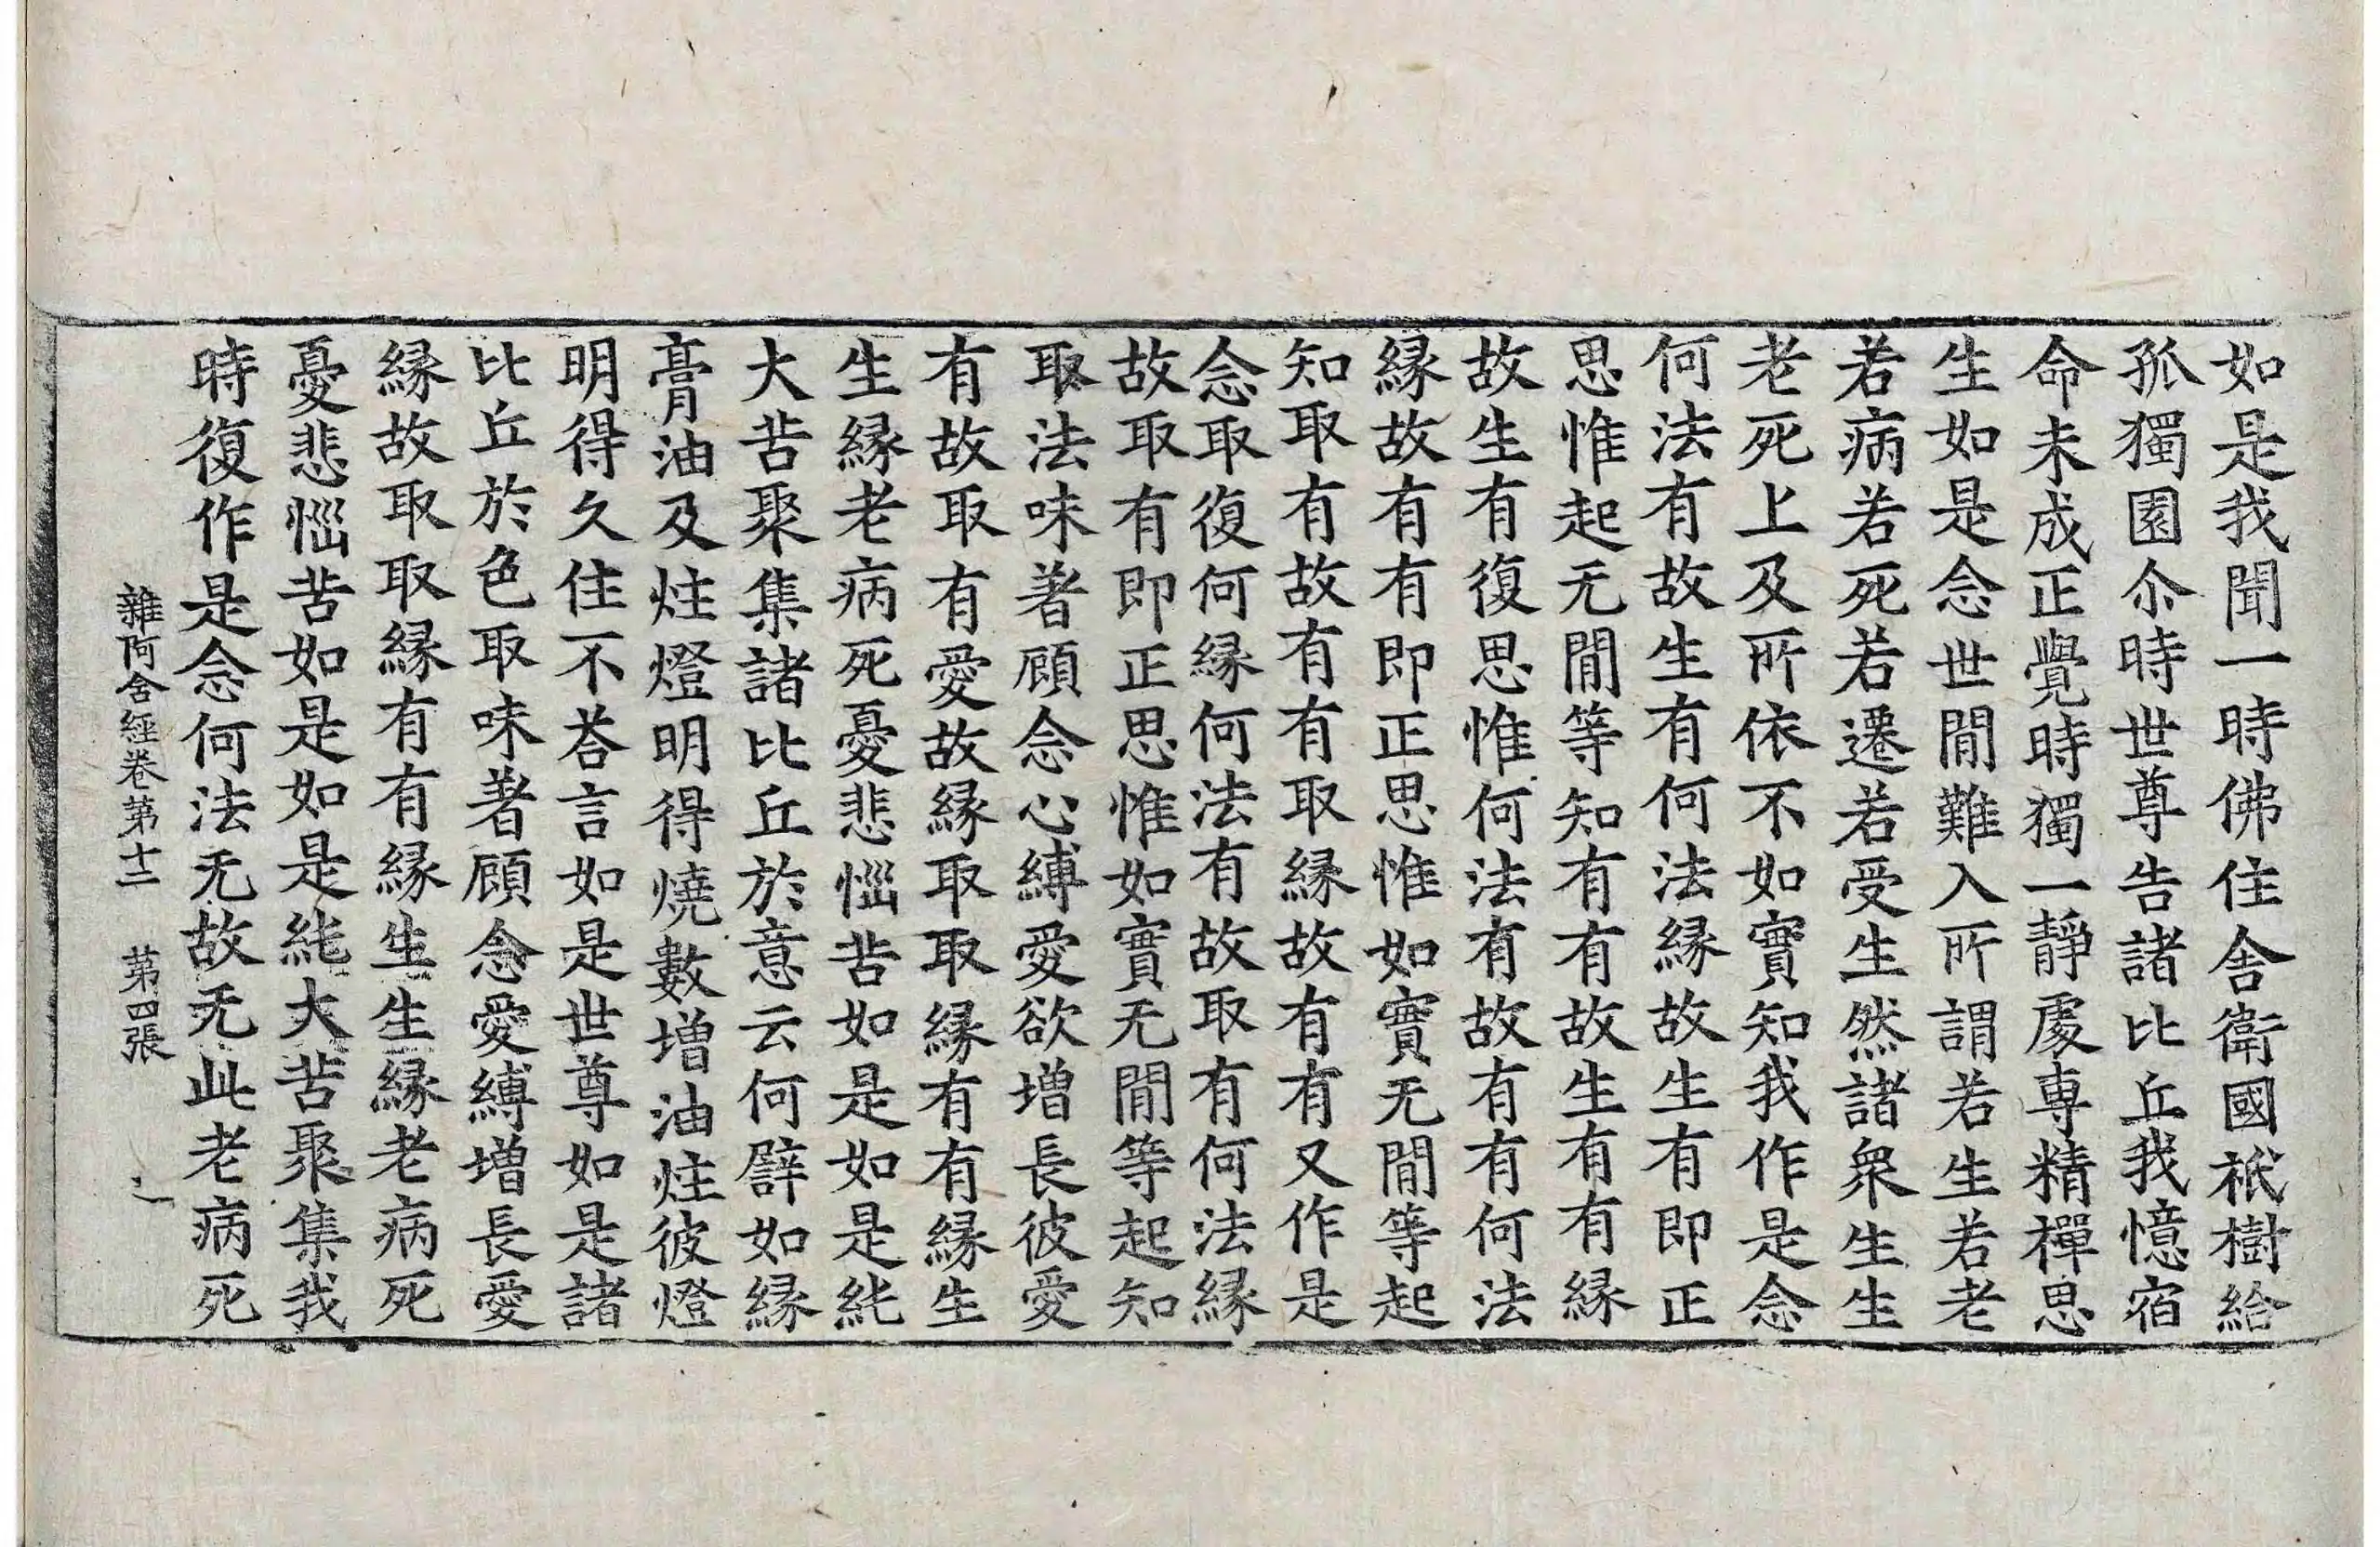 如是我聞一時佛住舍衛國祇樹給
孤獨園尒時世尊告諸比丘我憶宿
命未成正覺時獨一靜處專精禪思
生如是念世閒難入所謂若生若老
若病若死若遷若受生然諸衆生生
老死上及所依不如實知我作是念
何法有故生有何法緣故生有即正
思惟起无閒等知有有故生有有緣
故生有復思惟何法有故有有何法
緣故有有即正思惟如實无閒等起
知取有故有有取緣故有有又作是
念取復何緣何法有故取有何法緣
故取有即正思惟如實无閒等起知
取法味著顧念心縛愛欲增長彼愛
有故取有愛故緣取取緣有有緣生
生緣老病死憂悲惱苦如是如是純
大苦聚集諸比丘於意云何譬如緣
膏油及炷燈明得燒數增油炷彼燈
明得久住不荅言如是世尊如是諸
比丘於色取味著顧念愛縛增長愛
緣故取取緣有有緣生生緣老病死
憂悲惱苦如是如是純大苦聚集我
時復作是念何法无故无此老病死
雜阿含經卷第十二 第四張